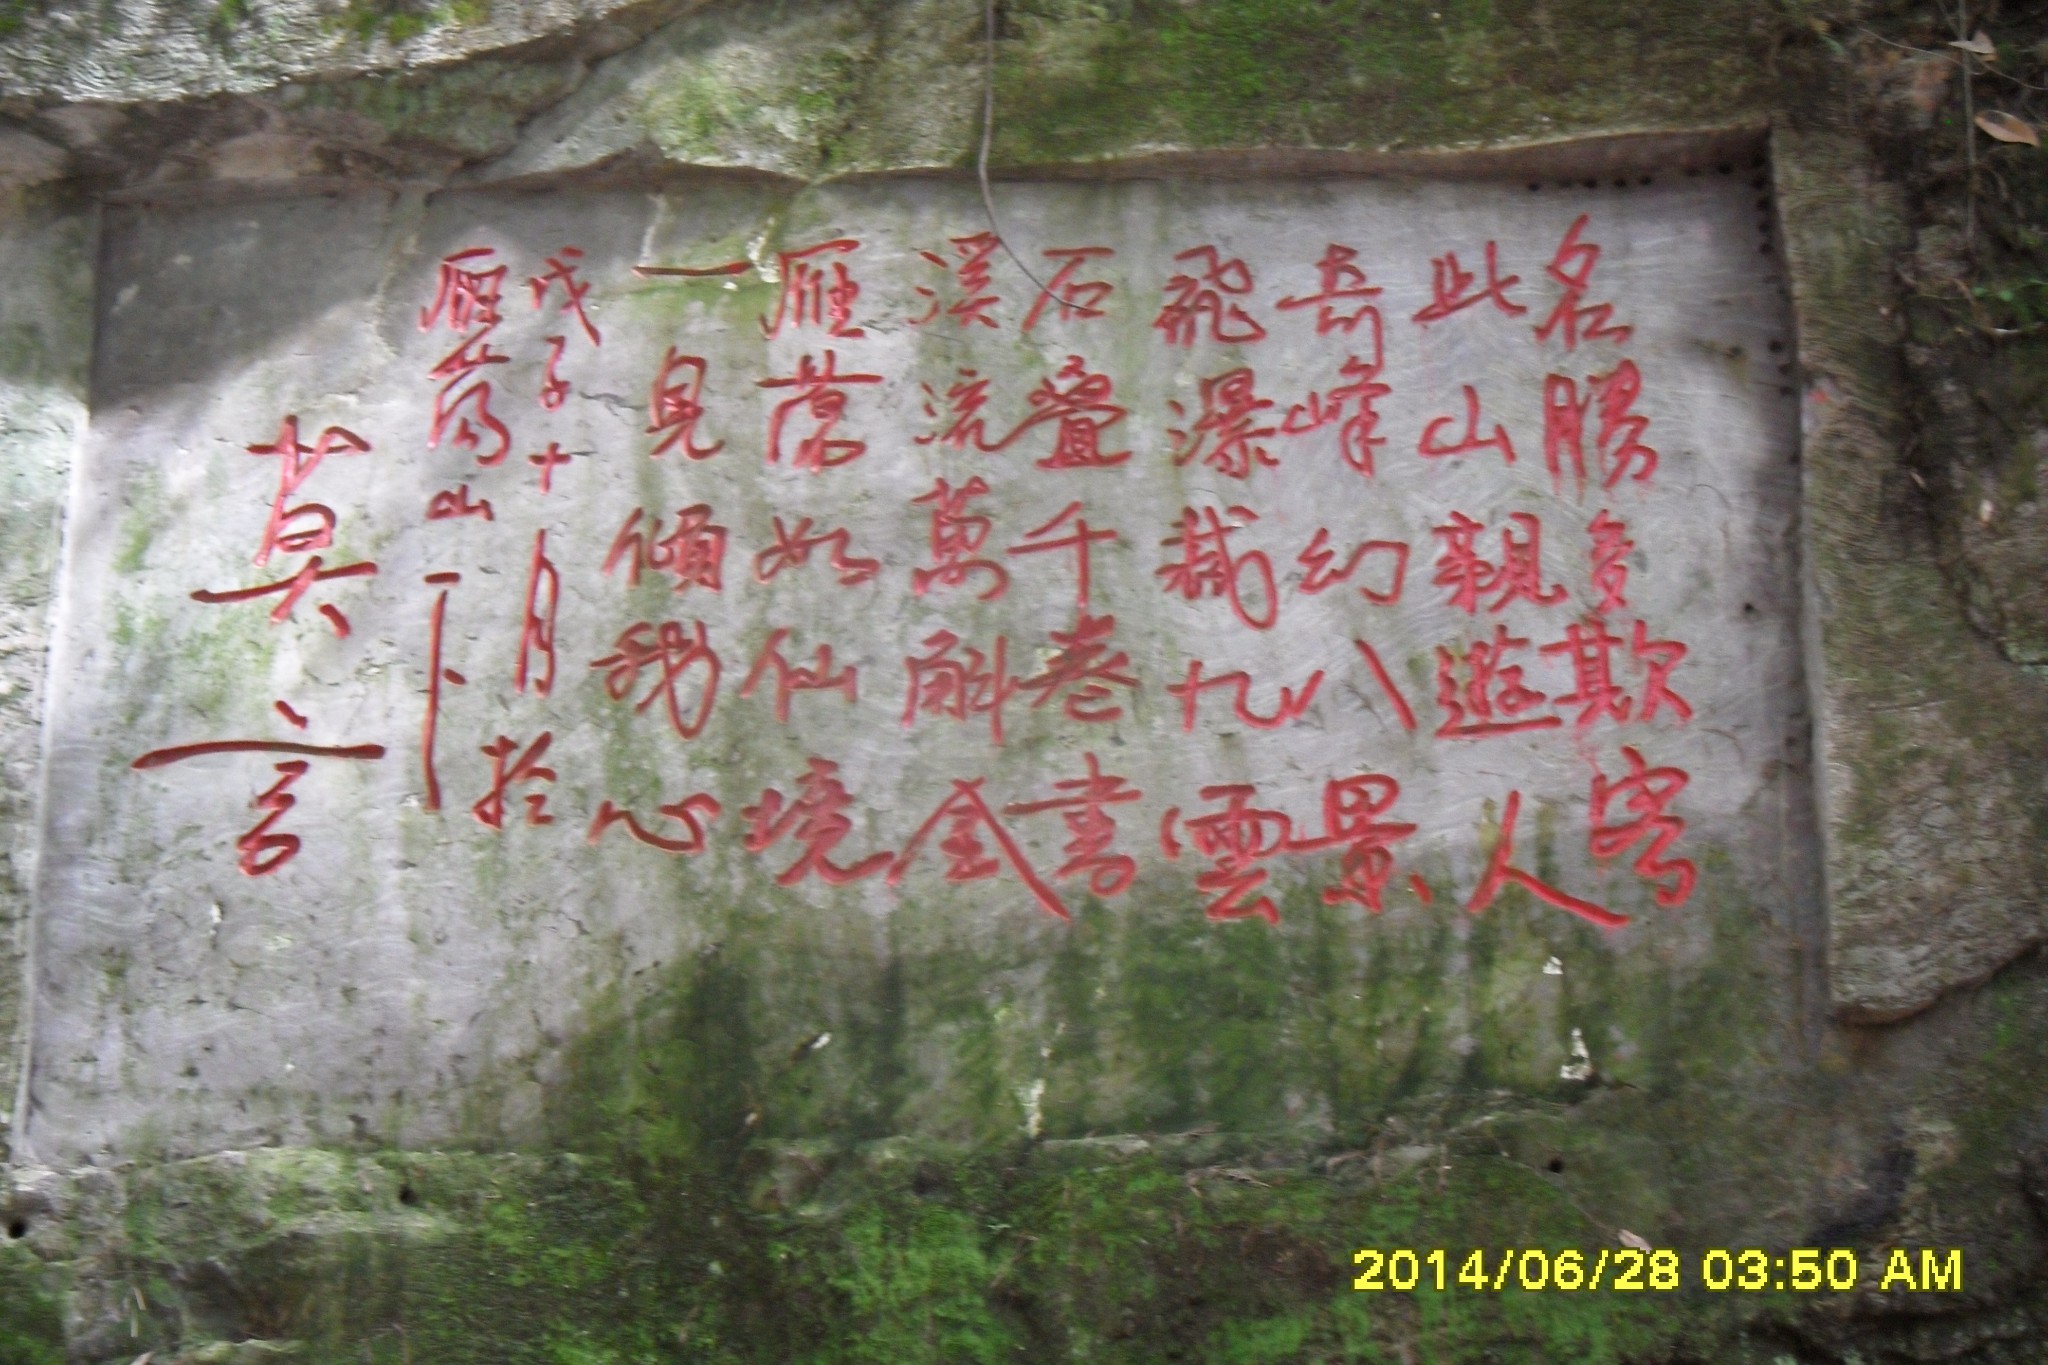 名勝多欺客
此山親遊人
奇峰幻八景
飛瀑裁九雲
石叠千卷書
溪流萬斛金
雁蕩如仙境
一見傾我心
戊子十月於
雁蕩山下
莫言
2014/06/28 03:50 AM